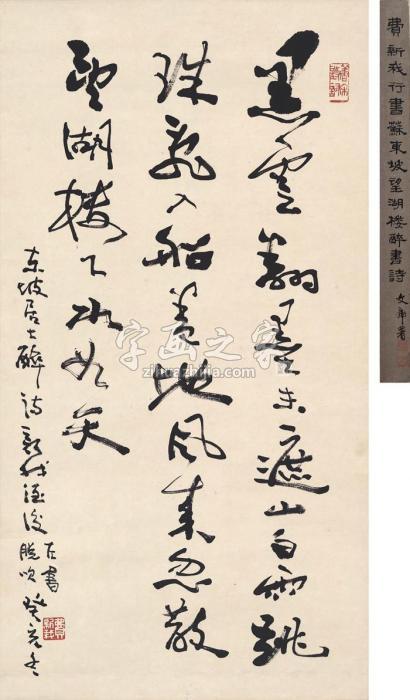 黑雲翻墨未遮山白雨跳
珠亂入船卷地風來忽散
望湖樓下水如天
東坡居士醉詩新我酒後
左書
脱吹癸亥冬
費新我行書蘇東坡望湖樓醉書詩
字画之家
zihuazhijia.com